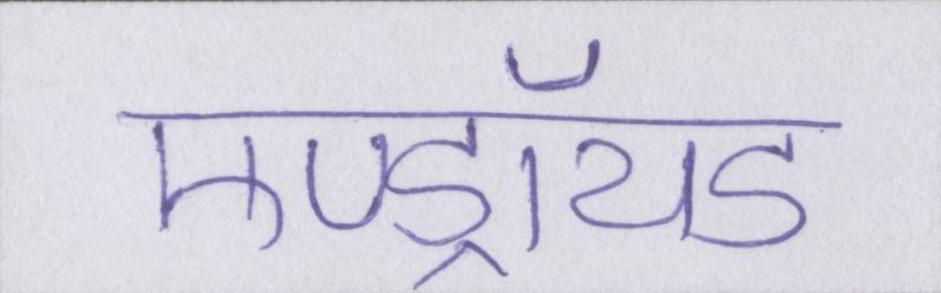 एण्ड्रॉयड